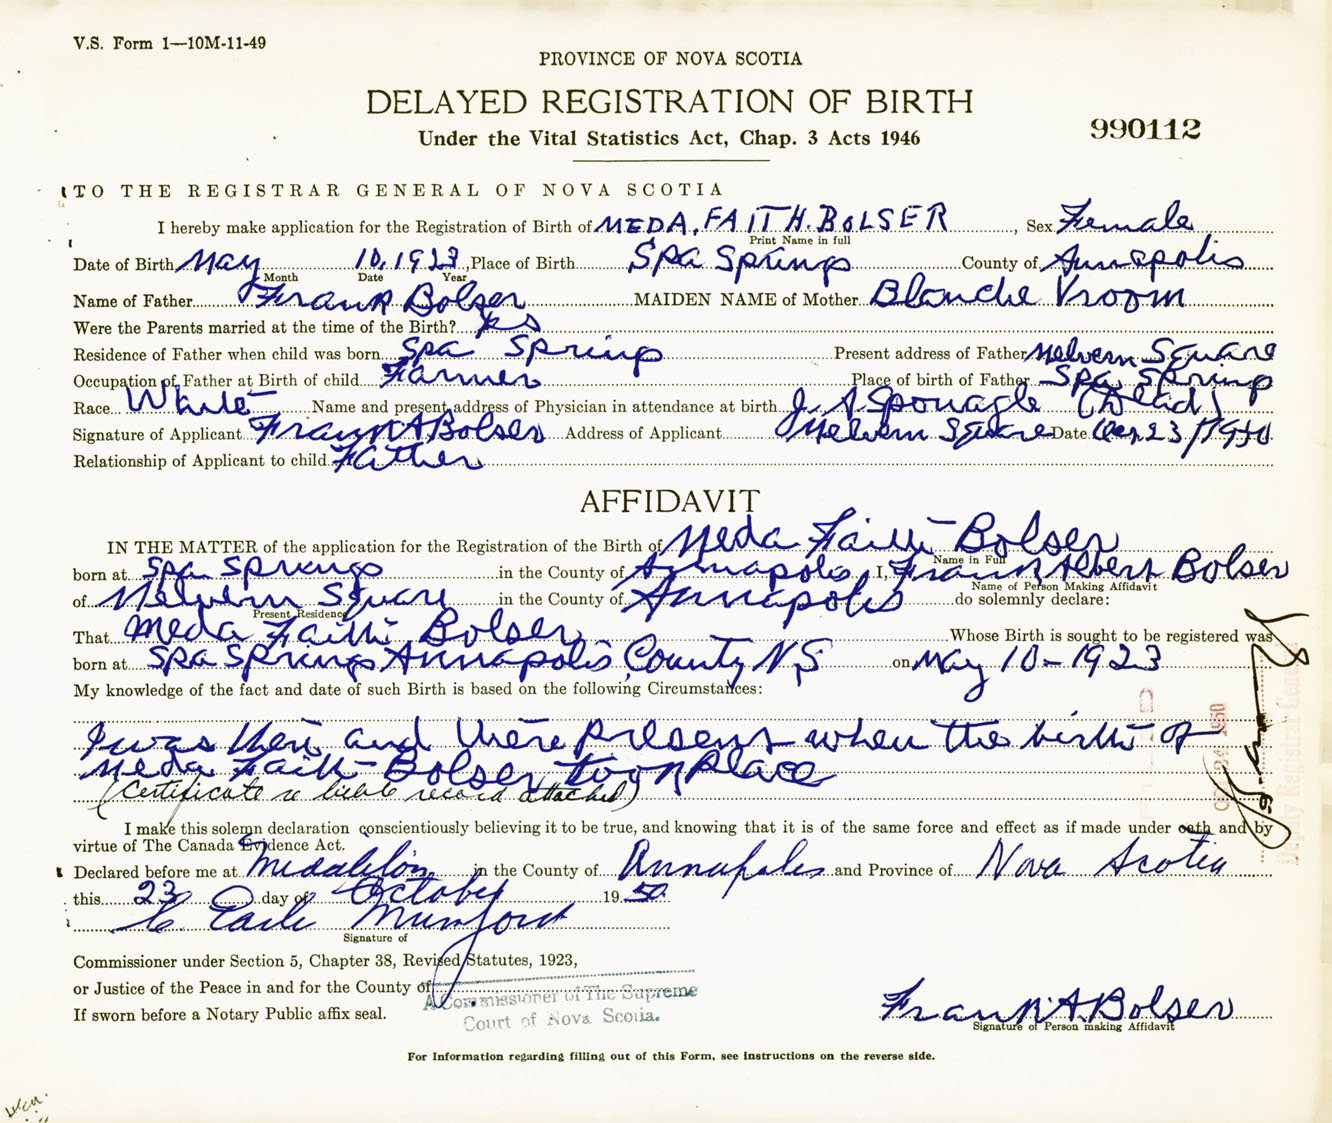 V.S. Form 1—10M-11-49
PROVINCE OF NOVA SCOTIA
DELAYED REGISTRATION OF BIRTH
990112
Under the Vital Statistics Act, Chap. 3 Acts 1946
TO THE REGISTRAR GENERAL OF NOVA SCOTIA
I hereby make application for the Registration of Birth of MEDA. FAITH. BOLSER, Sex Female
Print Name in full
Date of Birth May 10, 1923, Place of Birth Spa Springs County of Annapolis
Month Date Year
Name of Father Frank Bolser MAIDEN NAME of Mother Blanche Vroom
Were the Parents married at the time of the Birth? yes
Residence of Father when child was born Spa Springs Present address of Father Melvern Square
Occupation of Father at Birth of child Farmer Place of birth of Father Spa Springs
Race White Name and present address of Physician in attendance at birth J. A Sponagle (Dead)
Signature of Applicant Frank A Bolser Address of Applicant Melvern Square Date 23/1950
Relationship of Applicant to child Father
AFFIDAVIT
IN THE MATTER of the application for the Registration of the Birth of Meda Faith Bolser
Name in Full
born at Spa Springs in the County of Annapolis I, Frank Albert Bolser
Name of Person Making Affidavit
of Melvern Square in the County of Annapolis do solemnly declare:
Present Residence
That Meda Faith Bolser Whose Birth is sought to be registered was
born at Spa Springs Annapolis County N.S on May 10-1923
My knowledge of the fact and date of such Birth is based on the following Circumstances:
I was then and there present when the birth of
Meda Faith Bolser took place
(Certificate re bible record attached)
I make this solemn declaration conscientiously believing it to be true, and knowing that it is of the same force and effect as if made under oath and by
virtue of The Canada Evidence Act.
Declared before me at Middleton in the County of Annapolis and Province of Nova Scotia
this 23 day of October 19 50
C Earle Mumford
Signature of
Commissioner under Section 5, Chapter 38, Revised Statutes, 1923,
or Justice of the Peace in and for the County of
A Commissioner of The Supreme
Court of Nova Scotia.
If sworn before a Notary Public affix seal.
Frank A. Bolser
Signature of Person making Affidavit
For Information regarding filling out of this Form, see instructions on the reverse side.
Deputy Registrar General